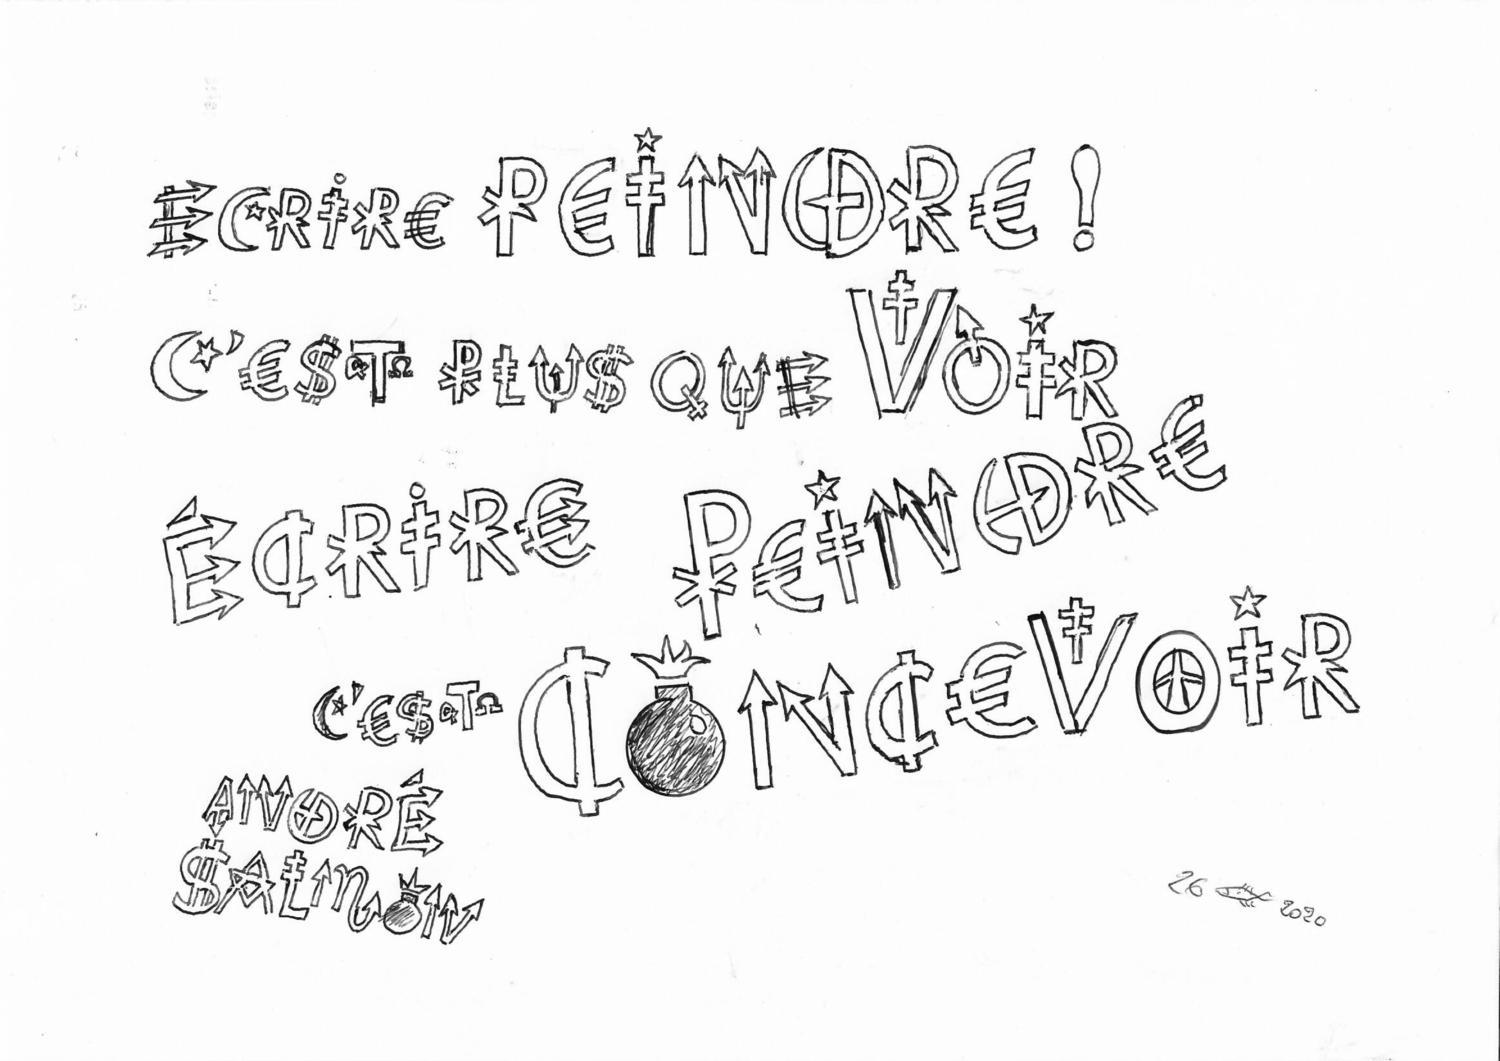 ECRIRE PEINDRE !
C'EST PLUS QUE VOIR
ÉCRIRE PEINDRE
C'EST CONCEVOIR
ANDRÉ
SALMON
26 2020